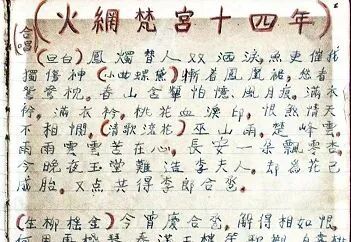 合唱
(火網梵宮十四年)
(旦白)鳳燭替人双洒淚,魚更催我
獨傷神(小曲蝶戀)斬着鳳凰裙,怨看
鴛鴦枕,春山含顰怕憶風月痕,滿衣
衿,滿衣衿,桃花血淚印,恨煞情天
不相憫,(清歌流花)巫山雨,楚峰雲,
雨雨雲雲苦在心,長安一朵飄零杏
今晚夜玉堂難造李夫人,却為花已
成胎,又点共得李郎合卺。
(生柳搖金)今宵慶合卺,解得相如恨,